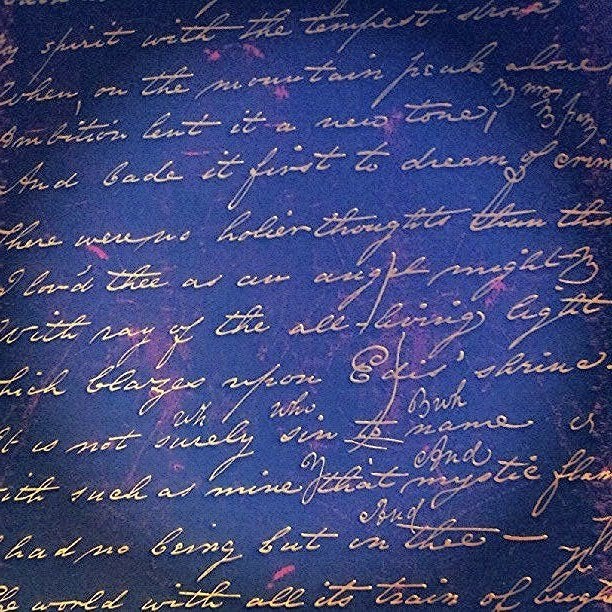 spirit with the tempest strove
When, on the mountain peak alone
Ambition lent it a new tone,
And bade it first to dream of crim
There were no holier thoughts than th
I lov'd thee as an angel might
With ray of the all-living light
hich blazes upon Edis' shrine-
wh who Bwh
It is not surely sin to name
And
ith such as mine that mystic flam
And
had no being but in thee —
he world with all its train of brigh